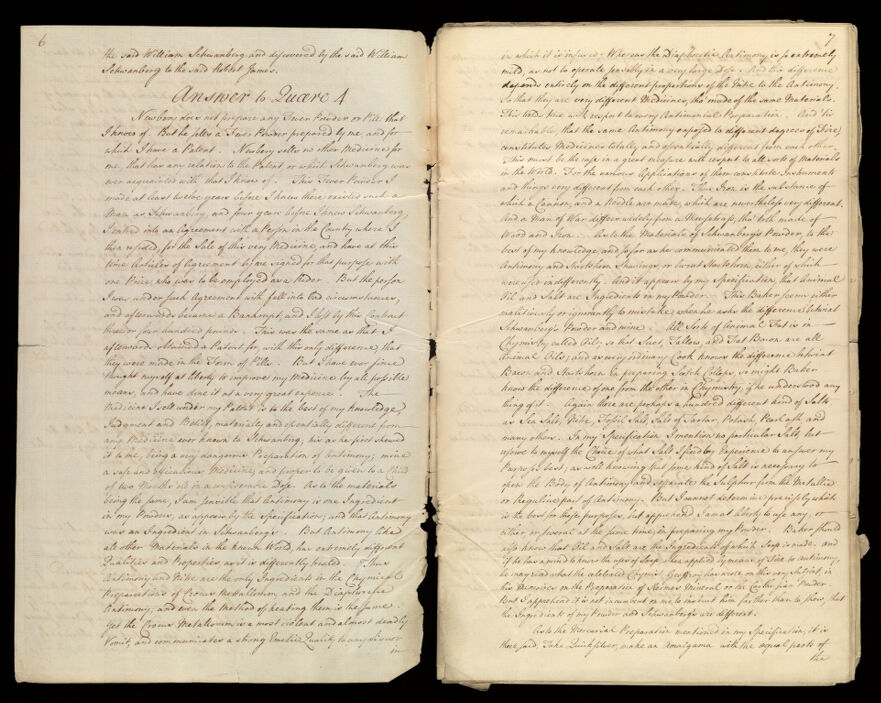 6
the said William Schwanberg and discovered by the said William
Schwanberg to the said Robert James.
Answer to Quære 4
Newbery does not prepare any Fever Powder or Pill that
I know of. But he sells a Fever Powder prepared by me and for
which I have a Patent. Newbery sells no other Medicine for
me, that has any relation to the Patent or which Schwanberg was
ever acquainted with, that I know of. This Fever Powder I
made at least twelve years before I knew there existed such a
Man as Schwanberg, and four years before I knew Schwanberg,
I entred into an Agreement with a Person in the Country where I
then resided, for the Sale of this very Medicine, and have at this
time Articles of Agreement before signed for that purpose with
one Price, who was to be employed as a Rider. But the person
I was under such Agreement with fell into bad circumstances,
and afterwards became a Bankrupt, and I lost by this Contract
three or four hundred pounds. This was the same as that I
afterwards obtained a Patent for, with this only difference, that
they were made in the Form of Pills. But I have ever since
thought myself at liberty to improve my Medicine by all possible
means, and have done it at a very great expence. The
Medicine I sell under my Patent is to the best of my Knowledge,
Judgment and Belief, materially and essentially different from
any Medicine ever known to Schwanberg, his as he first shewed
it to me, being a very dangerous Preparation of Antimony; mine
a safe and efficacious Medicine, and proper to be given to a Child
of two Months old in a reasonable Dose. As to the materials
being the same, I am sensible that Antimony is one Ingredient
in my Powder, as appears by the Specification; and that Antimony
was an Ingredient in Schwanberg's. But Antimony like
all other Materials in the known World, has extremely different
Qualities and Properties, as it is differently treated. Thus
Antimony and Nitre are the only Ingredients in the Chymical
Preparations of Crocus Metallorum, and the Diaphoretic
Antimony, and even the Method of heating them is the same.
Yet the Crocus Metallorum is a most violent and almost deadly
Vomit, and communicates a strong Emetic Quality to any liquor
in
7
in which it is infused; Whereas the Diaphoretic Antimony is so extremely
mild, as not to operate sensibly in a very large Dose. And this difference
depends entirely on the different proportions of the Nitre to the Antimony.
So that they are very different Medicines, tho' made of the same Materials.
This holds true with respect to every Antimonial Preparation. And 'tis
remarkable, that the same Antimony exposed to different degrees of Fire,
constitutes Medicines totally and essentially different from each other.
This must be the case in a great measure with respect to all sorts of Materials
in the World. For the various Applications of them constitute Instruments
and things very different from each other. Thus Iron is the substance of
which a Cannon, and a Needle are made, which are nevertheless very different.
And a Man of War differs widely from a Mousetrap, tho' both made of
Wood and Iron. As to the Materials of Schwanberg's Powder, to the
best of my knowledge, and so far as he communicated them to me, they were
Antimony and Hartshorn Shavings, or burnt Hartshorn, either of which
were used indifferently. And it appears by my Specification, that Animal
Oil and Salt are Ingredients in my Powder. This Baker seems either
maliciously or ignorantly to mistake, when he asks the difference betwixt
Schwanberg's Powder and mine. All Sorts of Animal Fat is in
Chymistry called Oil; so that Suet, Tallow, and Fat Bacon are all
Animal Oils; and as every ordinary Cook knows the difference betwixt
Bacon and Hartshorn in preparing Scotch Collops, so might Baker
know the difference of one from the other in Chymistry, if he understood any
thing of it. Again there are perhaps a hundred different kind of Salts
as Sea Salt, Nitre, Fossil Salt, Salt of Tartar, Potash, Pearl ash, and
many others. In my Specification I mention no particular Salt, but
reserve to myself the Choice of what Salt I find by Experience to answer my
Purpose best; as well knowing that some kind of Salt is necessary to
open the Body of Antimony and separate the Sulphur from the Metallic
or Reguline part of Antimony. But I cannot determine precisely which
is the best for these purposes, but apprehend I am at liberty to use any, or
either, or several at the same time, in preparing my Powder. Baker should
also know that Oil and Salt are the Ingredients of which Soap is made, and
if he has a mind to know the uses of Soap when applied by means of Fire to Antimony,
he may read what the celebrated Chymist Geoffroy has wrote on this very Subject, in
his Memoires on the Preparation of Kermes Mineral or the Carthusian Powder.
But I apprehend it is not incumbent on me to instruct him farther than to shew, that
the Ingredients of my Powder and Schwanberg's are different.
As to the Mercurial Preparation mentioned in my Specification, it is
there said, Take Quicksilver, make an Amalgama with the equal parts of
the